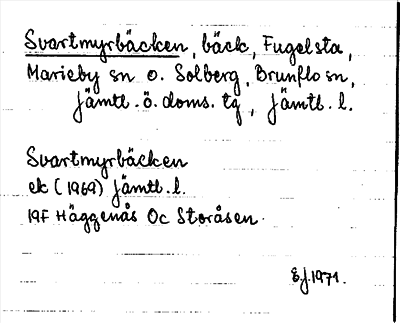 Svartmyrbäcken, bäck, Fugelsta,
Marieby sn o. Solberg, Brunflo sn,
Jämtl. ö. doms. tg, Jämtl. l.
Svartmyrbäcken
ek (1969) Jämtl. l.
19F Häggenås Oc Storåsen.
EJ. 1971.